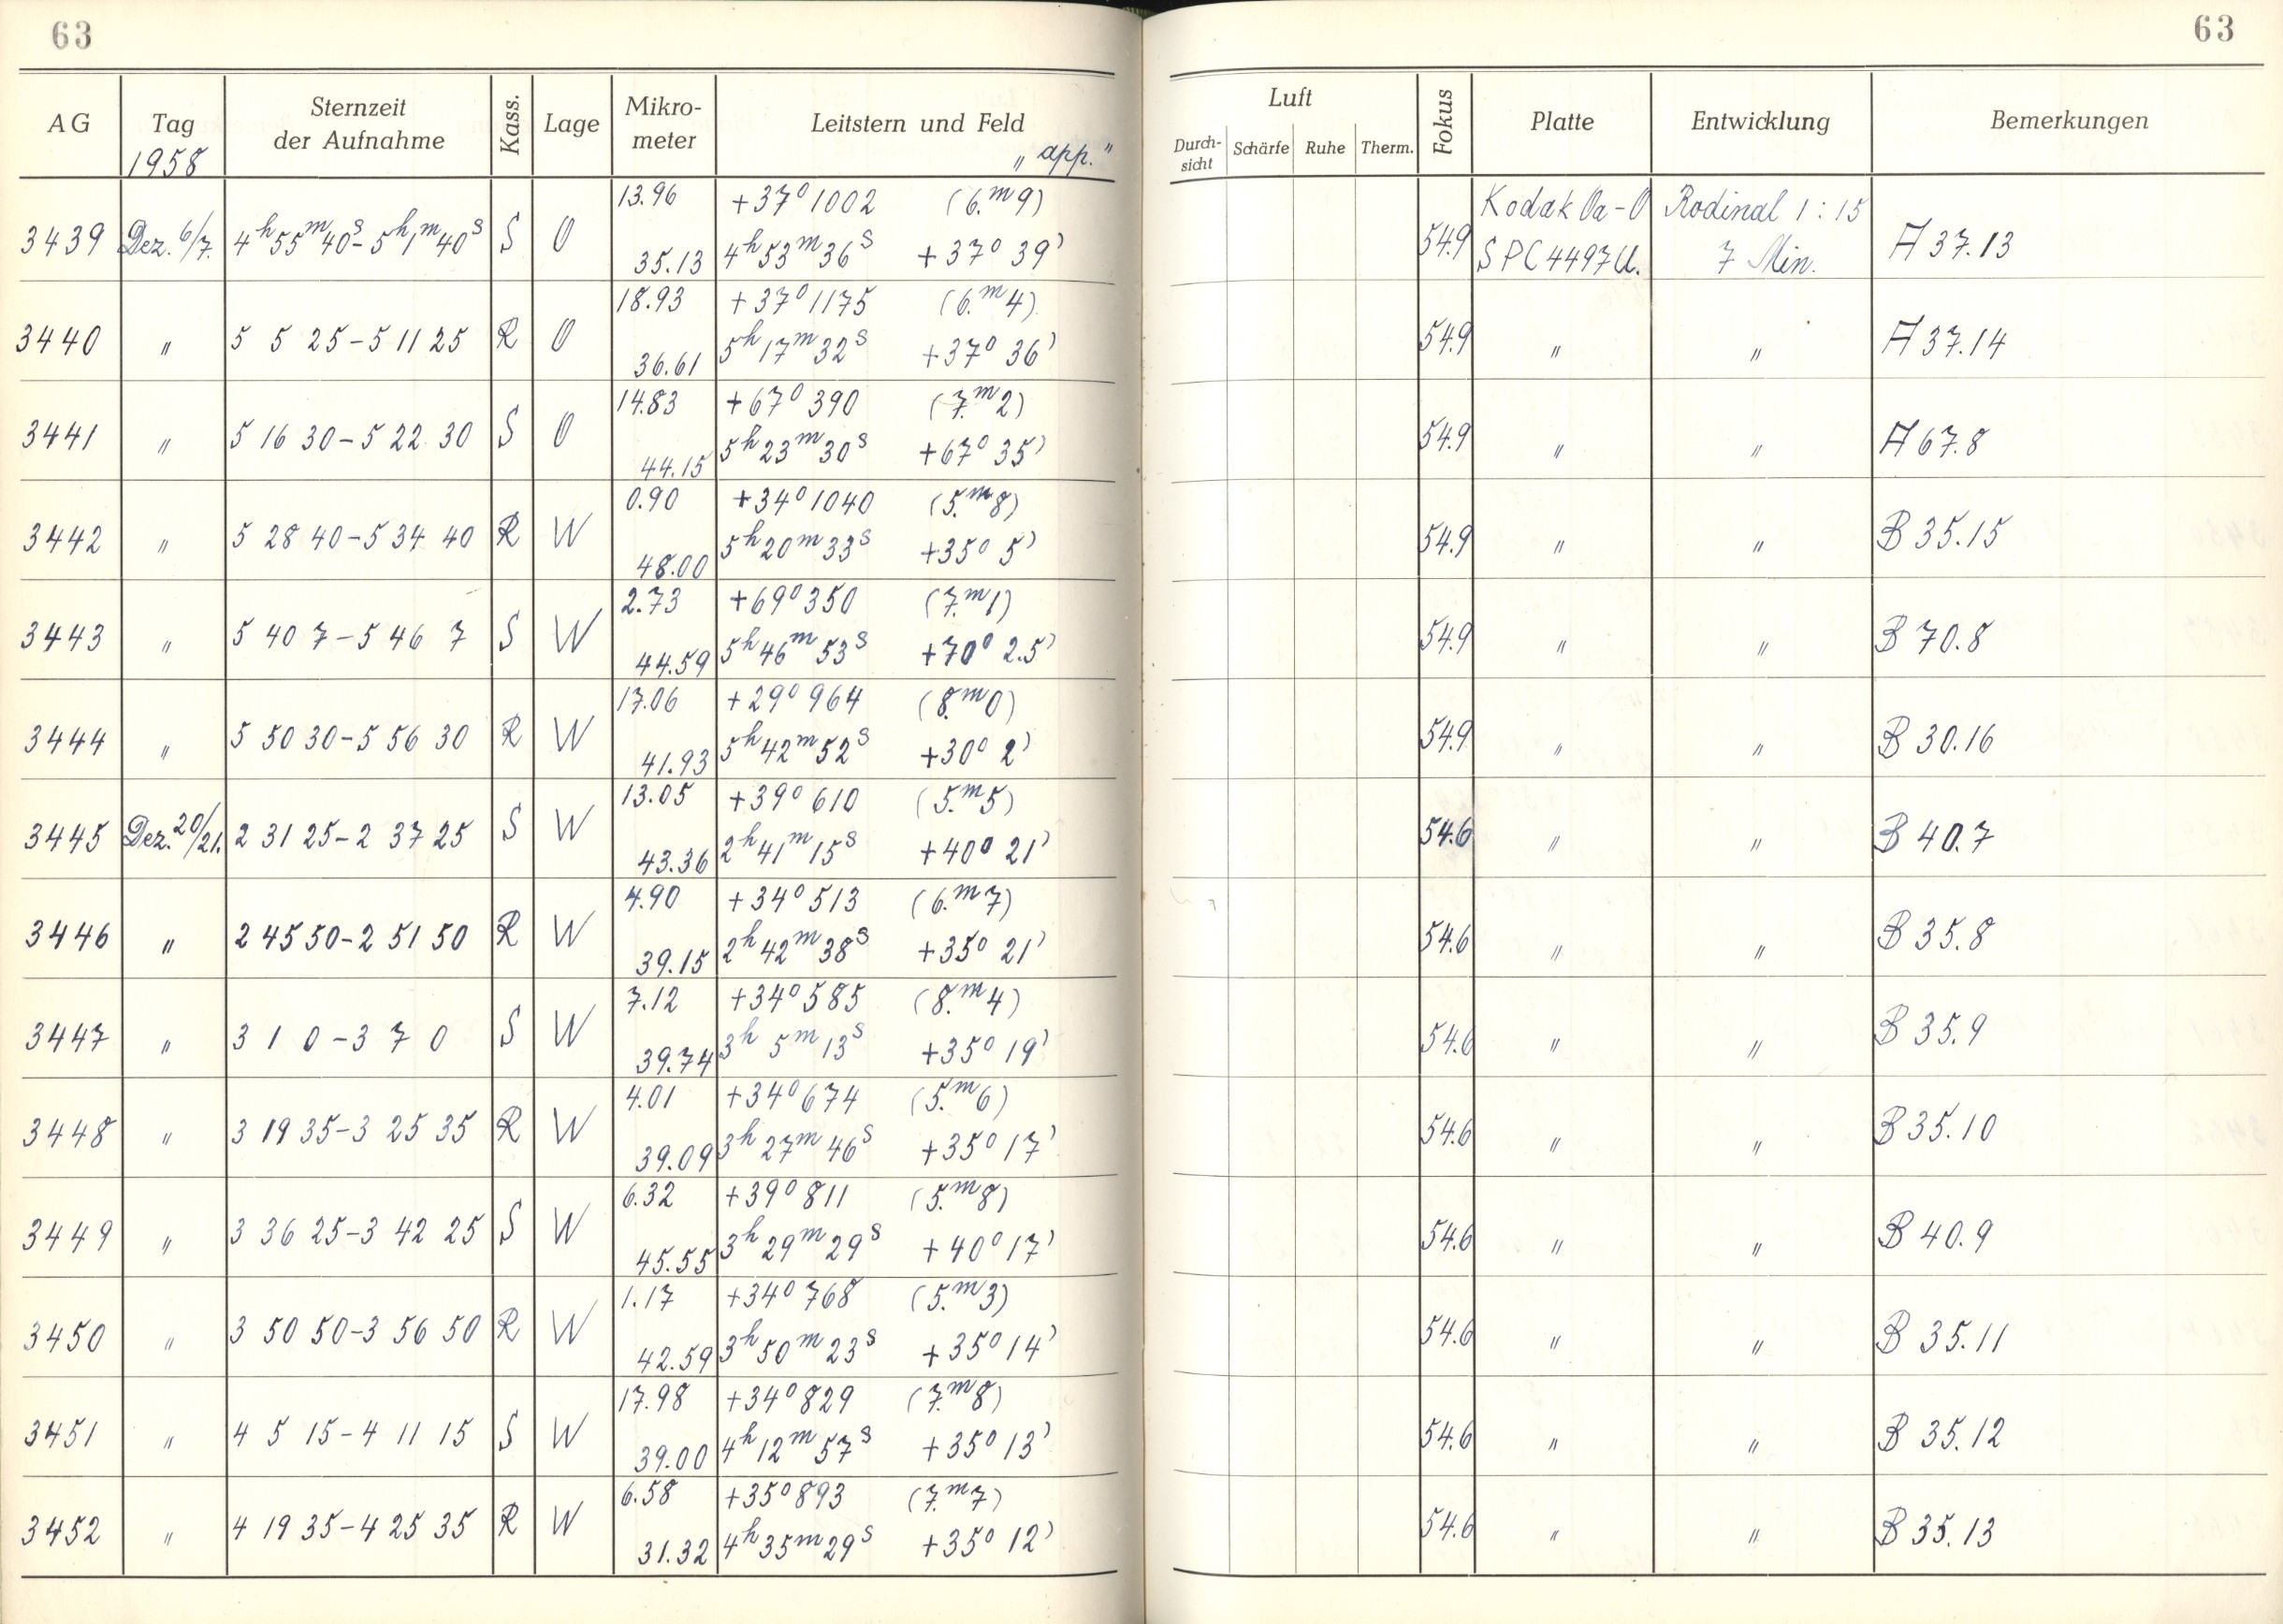 63
63
AG Tag Sternzeit der Aufnahme Kass. Lage Mikro-meter Leitstern und Feld Luft Durch-sicht Schärfe Ruhe Therm. Fokus Platte Entwicklung Bemerkungen
1958 „app.“
13.96 +37° 1002 (6.ᵐ9) Kodak Oa-O Rodinal 1:15
3439 Dez. 6/7. 4ʰ55ᵐ40ˢ-5ʰ1ᵐ40ˢ S O 35.13 4ʰ53ᵐ36ˢ +37° 39' 54.9 SPC4497U. 7 Min. A 37.13
18.93 +37° 1175 (6.ᵐ4)
3440 " 5 5 25-5 11 25 R O 36.61 5ʰ17ᵐ32ˢ +37° 36' 54.9 " " A 37.14
14.83 +67° 390 (7.ᵐ2)
3441 " 5 16 30-5 22 30 S O 44.15 5ʰ23ᵐ30ˢ +67° 35' 54.9 " " A 67.8
0.90 +34° 1040 (5.ᵐ8)
3442 " 5 28 40-5 34 40 R W 48.00 5ʰ20ᵐ33ˢ +35° 5' 54.9 " " B 35.15
2.73 +69° 350 (7.ᵐ1)
3443 " 5 40 7-5 46 7 S W 44.59 5ʰ46ᵐ53ˢ +70° 2.5' 54.9 " " B 70.8
17.06 +29° 964 (8.ᵐ0)
3444 " 5 50 30-5 56 30 R W 41.93 5ʰ42ᵐ52ˢ +30° 2' 54.9 " " B 30.16
13.05 +39° 610 (5.ᵐ5)
3445 Dez. 20/21. 2 31 25-2 37 25 S W 43.36 2ʰ41ᵐ15ˢ +40° 21' 54.6 " " B 40.7
4.90 +34° 513 (6.ᵐ7)
3446 " 2 45 50-2 51 50 R W 39.15 2ʰ42ᵐ38ˢ +35° 21' 54.6 " " B 35.8
7.12 +34° 585 (8.ᵐ4)
3447 " 3 1 0-3 7 0 S W 39.74 3ʰ 5ᵐ13ˢ +35° 19' 54.6 " " B 35.9
4.01 +34° 674 (5.ᵐ6)
3448 " 3 19 35-3 25 35 R W 39.09 3ʰ27ᵐ46ˢ +35° 17' 54.6 " " B 35.10
6.32 +39° 811 (5.ᵐ8)
3449 " 3 36 25-3 42 25 S W 45.55 3ʰ29ᵐ29ˢ +40° 17' 54.6 " " B 40.9
1.17 +34° 768 (5.ᵐ3)
3450 " 3 50 50-3 56 50 R W 42.59 3ʰ50ᵐ23ˢ +35° 14' 54.6 " " B 35.11
17.98 +34° 829 (7.ᵐ8)
3451 " 4 5 15-4 11 15 S W 39.00 4ʰ12ᵐ57ˢ +35° 13' 54.6 " " B 35.12
6.58 +35° 893 (7.ᵐ7)
3452 " 4 19 35-4 25 35 R W 31.32 4ʰ35ᵐ29ˢ +35° 12' 54.6 " " B 35.13